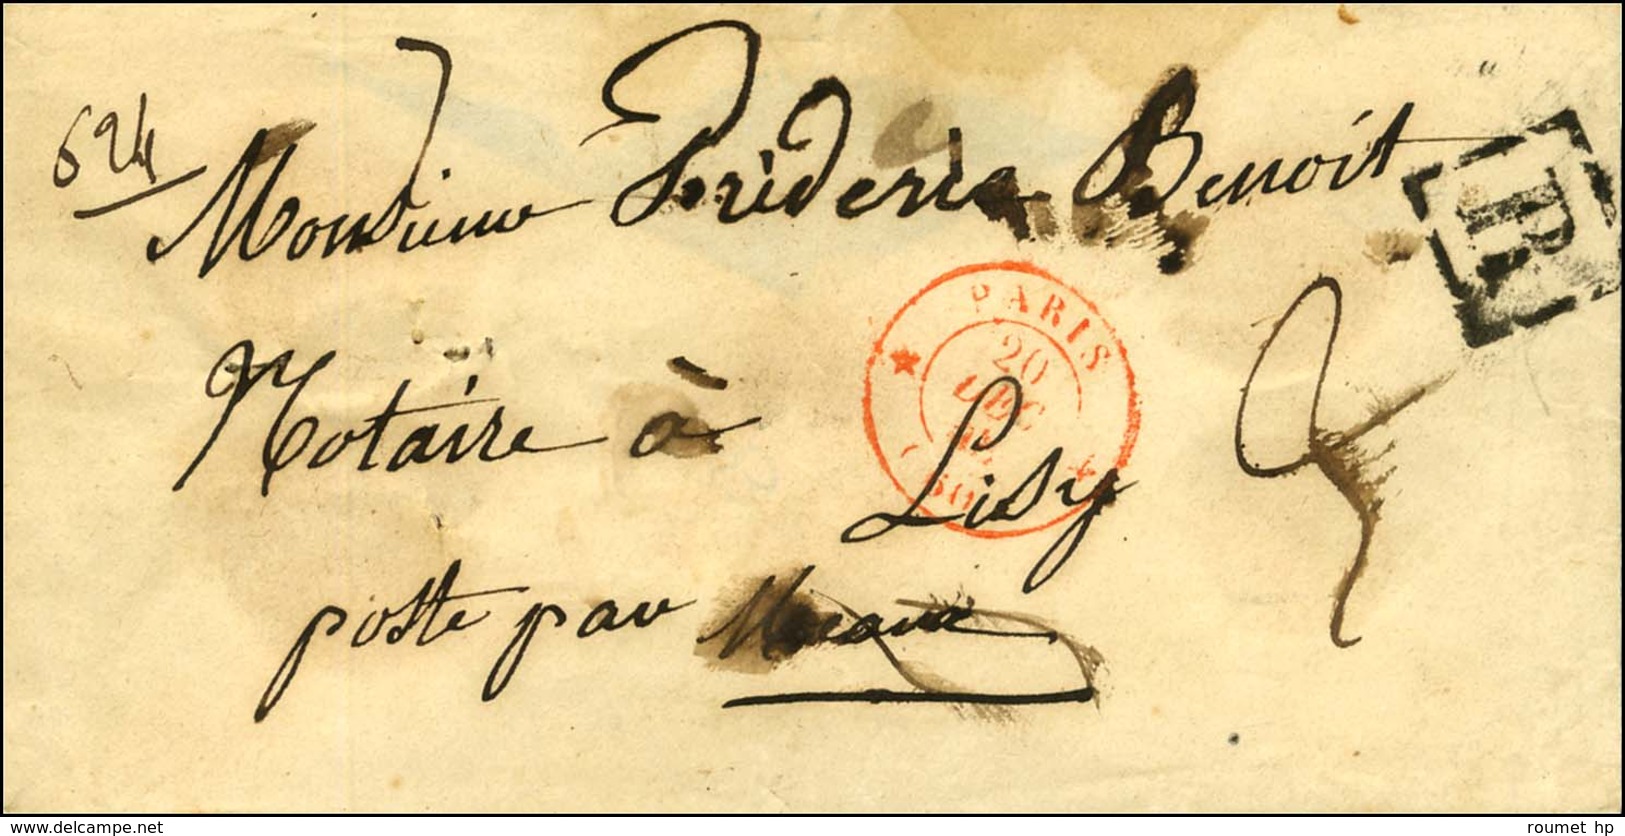 624
Monsieur Frédéric Benoit
R
PARIS
20
DEC
(60)
Notaire à
Lisy
poste par Meaux
delcampe.net
roumet hp